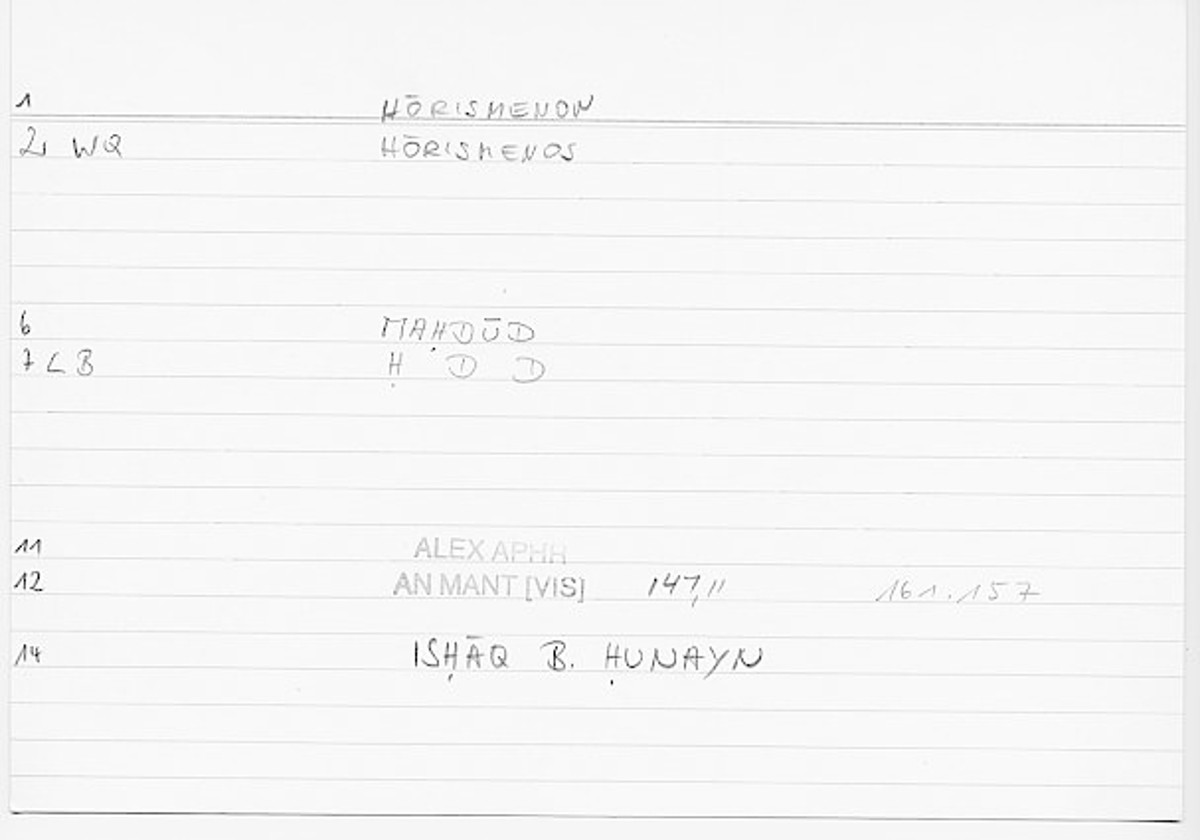 1 HŌRISMENON
2, WQ HŌRISMENOS
6 MAḤDŪD
7 LB Ḥ D D
11 ALEX APHR
12 AN MANT [VIS] 147,11 161.157
14 ISḤĀQ B. ḤUNAYN